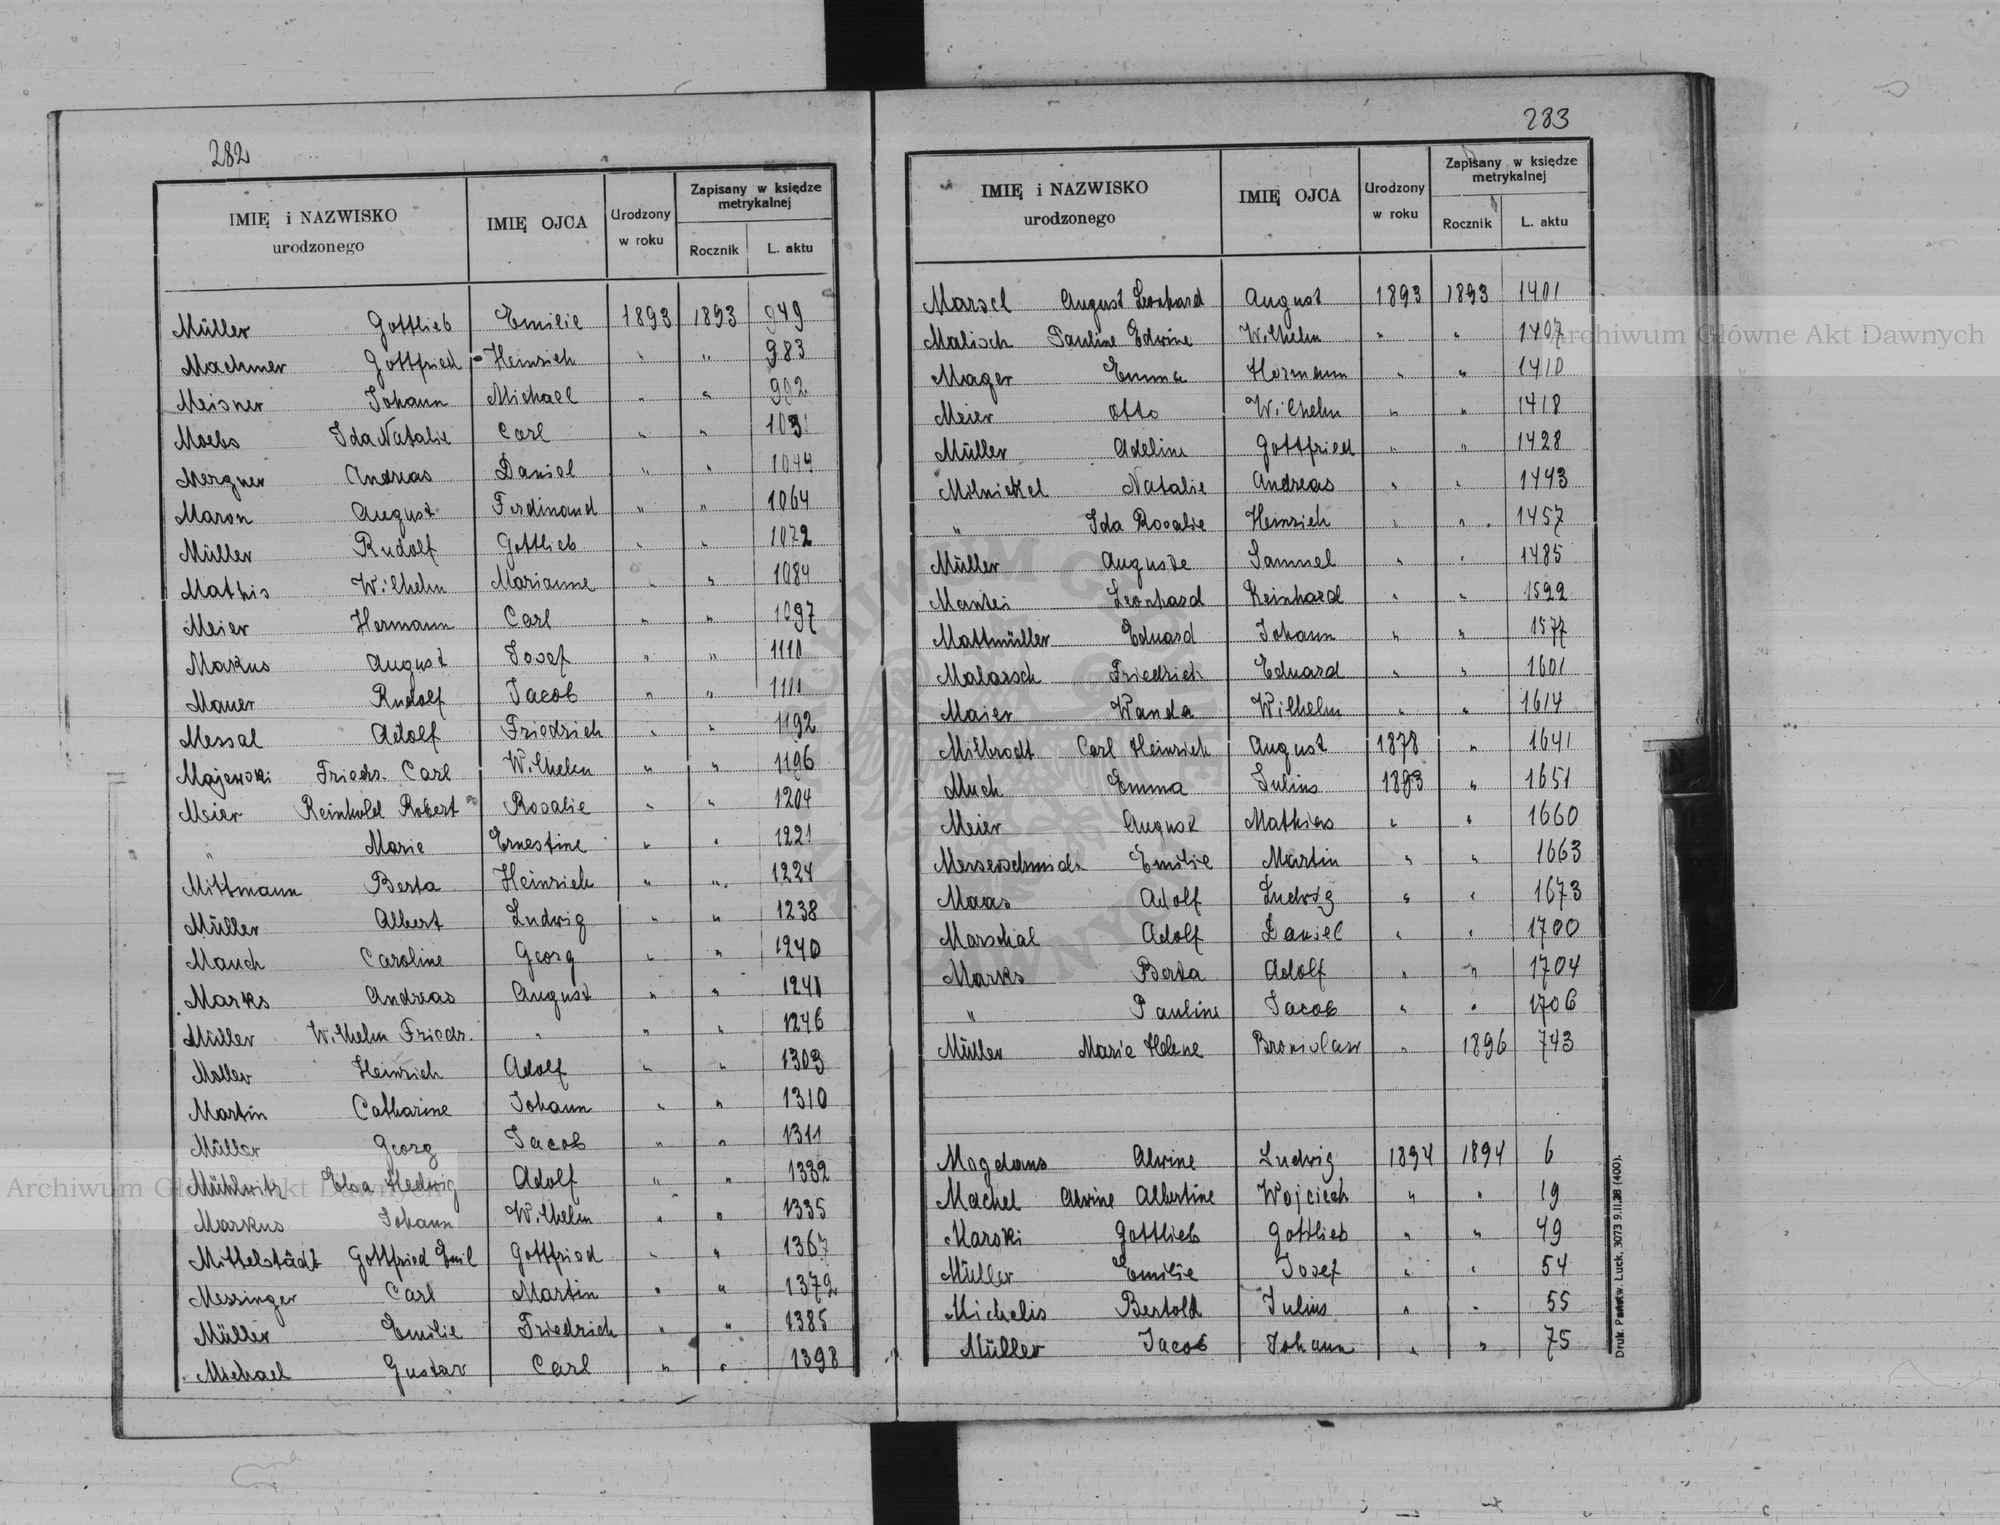 282
IMIĘ i NAZWISKO urodzonego IMIĘ OJCA Urodzony w roku Zapisany w księdze metrykalnej Rocznik L. aktu
Müller Gottlieb Emilie 1893 1893 949
Machmer Gottfried Heinrich " " 983
Meisner Johann Michael " " 992
Moebs Ida Natalie Carl " "
Mergner Andreas Daniel " " 1044
Maron August Ferdinand " " 1064
Müller Rudolf Gottlieb " " 1072
Mathis Wilhelm Marianne " " 1084
Meier Hermann Carl " " 1097
Markus August Josef " " 1110
Mauer Rudolf Jacob " " 1111
Messal Adolf Friedrich " " 1192
Majewski Friedr. Carl Wilhelm " " 1196
Meier Reinhold Robert Rosalie " " 1204
" Marie Ernestine " " 1221
Mittmann Berta Heinrich " " 1224
Müller Albert Ludwig " " 1238
Mauch Caroline Georg " " 1240
Marks Andreas August " " 1241
Müller Wilhelm Friedr. " " " 1246
Moller Heinrich Adolf " " 1303
Martin Catharine Johann " " 1310
Müller Georg Jacob " " 1311
Mühlwitz Elsa Hedwig Adolf " " 1332
Markus Johann Wilhelm " " 1335
Mittelstädt Gottfried Emil Gottfried " " 1367
Messinger Carl Martin " " 1372
Müller Emilie Friedrich " " 1385
Michael Gustav Carl " " 1398
283
IMIĘ i NAZWISKO urodzonego IMIĘ OJCA Urodzony w roku Zapisany w księdze metrykalnej Rocznik L. aktu
Marsel August Leonhard August 1893 1893 1401
Malisch Pauline Edwine Wilhelm " " 1407
Mager Emma Hermann " " 1410
Meier Otto Wilhelm " " 1418
Müller Adeline Gottfried " " 1428
Milnickel Natalie Andreas " " 1443
" Ida Rosalie Heinrich " " 1457
Müller Auguste Samuel " " 1485
Mantei Leonhard Reinhard " " 1522
Mattmüller Eduard Johann " " 1577
Malarsch Friedrich Eduard " " 1601
Maier Wanda Wilhelm " " 1614
Milbrodt Carl Heinrich August 1878 " 1641
Much Emma Julius 1893 " 1651
Meier August Mathias " " 1660
Messerschmidt Emilie Martin " " 1663
Maas Adolf Ludwig " " 1673
Marschal Adolf Daniel " " 1700
Marks Berta Adolf " " 1704
" Pauline Jacob " " 1706
Müller Marie Helene Bronislaw " 1896 743
Magdans Alwine Ludwig 1894 1894 6
Machel Alwine Albertine Wojciech " " 19
Marski Gottlieb Gottlieb " " 49
Müller Emilie Josef " " 54
Michelis Bertold Julius " " 55
Müller Jacob Johann " " 75
Druk. Państw. Łuck. 3073 9.II.28 (400).
Archiwum Główne Akt Dawnych
Archiwum Główne Akt Dawnych
ARCHIWUM GŁÓWNE AKT DAWNYCH